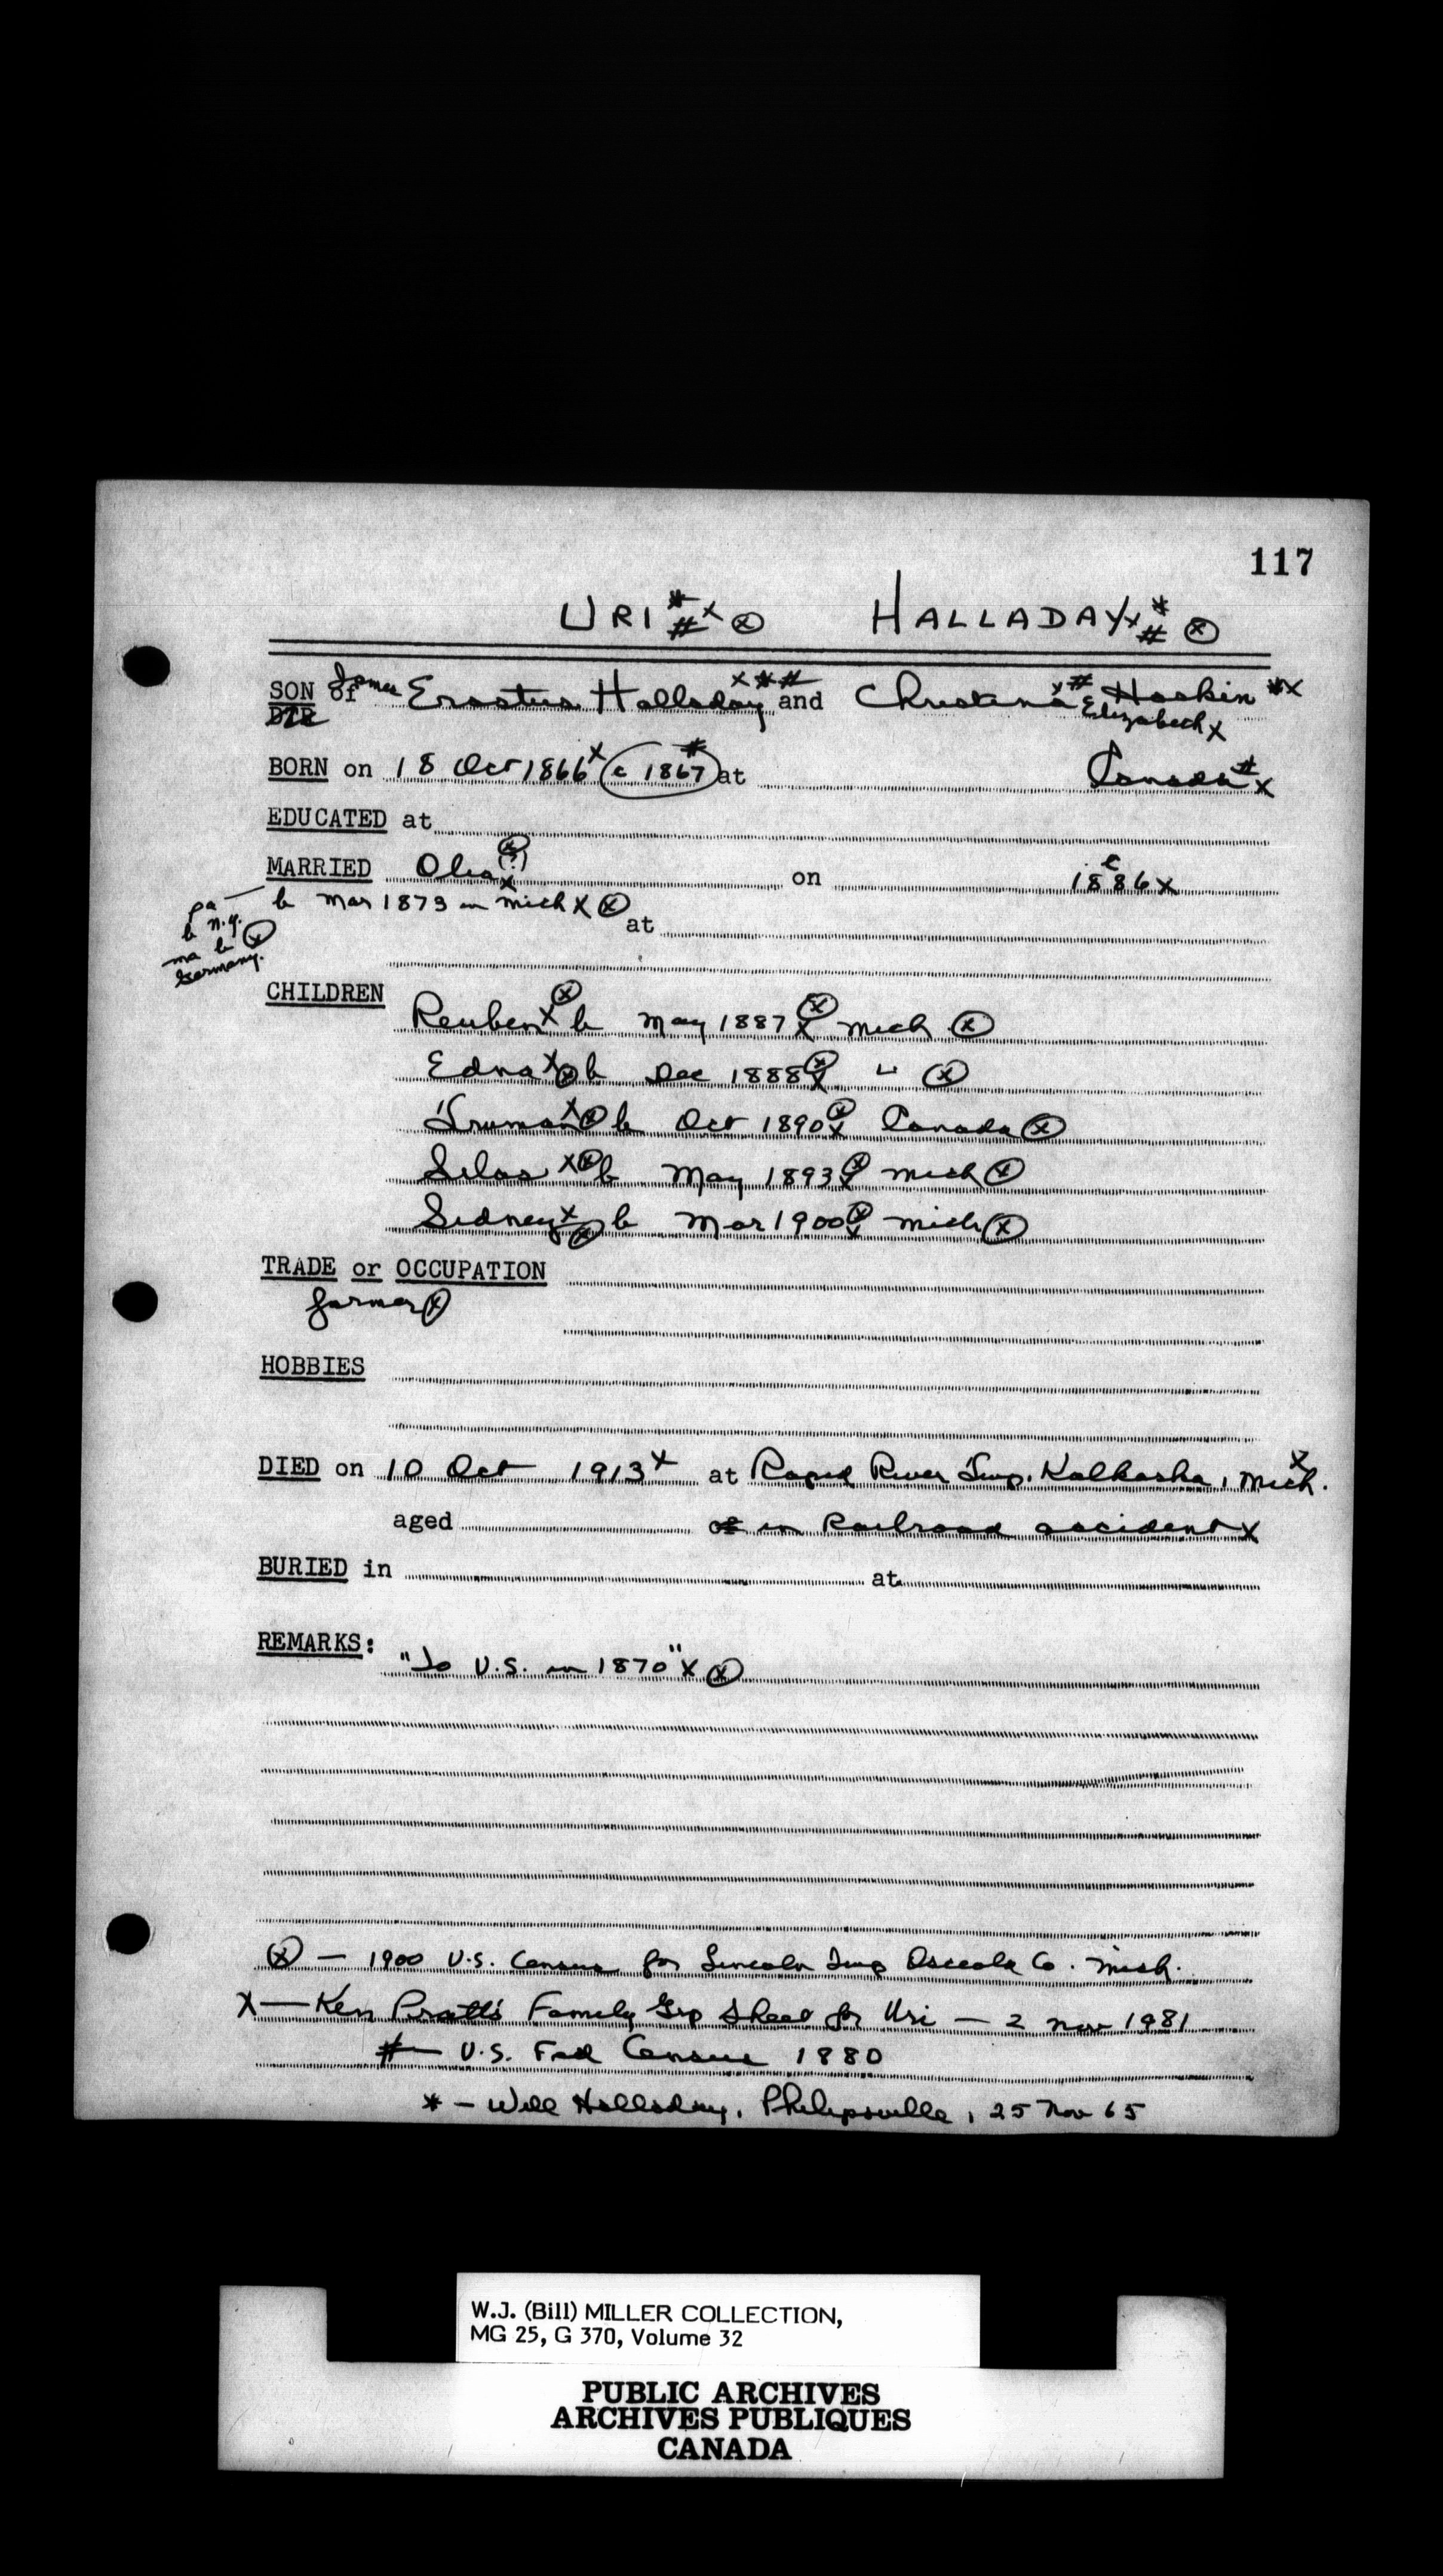 117
URI * # x ⓧ HALLADAY x * # ⓧ
SON of James Erastus Halladay x * # and Christena x # Elizabeth x Hoskin * x
DTR
BORN on 18 Oct 1866 x (c 1867 #) at Canada # x
EDUCATED at
MARRIED ⓧ (?) x on c 1886 x
b Mar 1873 in Mich x ⓧ
at
pa —
b N.Y.
ma b ⓧ
Germany.
CHILDREN
Reuben x ⓧ b May 1887 ⓧ x Mich ⓧ
Edna x ⓧ b Dec 1888 ⓧ x " ⓧ
Truman x ⓧ b Oct 1890 ⓧ x Canada ⓧ
Silas x ⓧ b May 1893 ⓧ x Mich ⓧ
Sidney x ⓧ b Mar 1900 ⓧ x Mich ⓧ
TRADE or OCCUPATION
farmer ⓧ
HOBBIES
DIED on 10 Oct 1913 x at Rapid River Twp. Kalkaska, Mich. x
aged of in Railroad accident x
BURIED in at
REMARKS:
"To U.S. in 1870" x ⓧ
ⓧ — 1900 U.S. Census for Lincoln Twp Osceola Co. Mich.
x — Ken Pratt's Family Grp Sheet for Uri — 2 Nov 1981
# — U.S. Fed Census 1880
* — Will Halladay, Philipsville, 25 Nov 65
W.J. (Bill) MILLER COLLECTION,
MG 25, G 370, Volume 32
PUBLIC ARCHIVES
ARCHIVES PUBLIQUES
CANADA